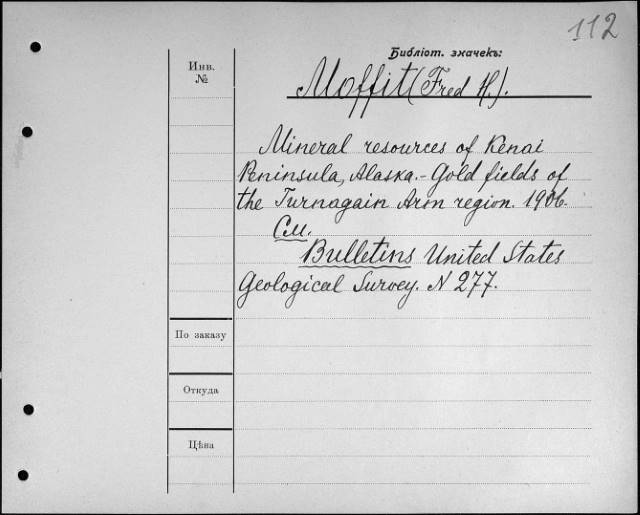 112
Библіот. значекъ:
Инв.
№
Moffit (Fred H.).
Mineral resources of Kenai
Peninsula, Alaska. - Gold fields of
the Turnagain Arm region. 1906.
См.
Bulletins United States
Geological Survey. N 277.
По заказу
Откуда
Цѣна